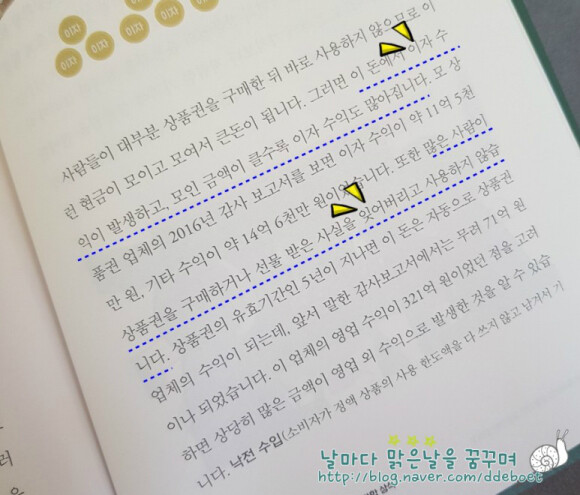 이자
이자
이자
이자
이자
이자
이자
사람들이 대부분 상품권을 구매한 뒤 바로 사용하지 않으므로 이
런 현금이 모이고 모여서 큰돈이 됩니다. 그러면 이 돈에서 이자 수
익이 발생하고, 모인 금액이 클수록 이자 수익도 많아집니다. 모 상
품권 업체의 2016년 감사 보고서를 보면 이자 수익이 약 11억 5천
만 원, 기타 수익이 약 14억 6천만 원이었습니다. 또한 많은 사람이
상품권을 구매하거나 선물 받은 사실을 잊어버리고 사용하지 않습
니다. 상품권의 유효기간인 5년이 지나면 이 돈은 자동으로 상품권
업체의 수익이 되는데, 앞서 말한 감사보고서에서는 무려 71억 원
이나 되었습니다. 이 업체의 영업 수익이 321억 원이었던 점을 고려
하면 상당히 많은 금액이 영업 외 수익으로 발생한 것을 알 수 있습
니다. 낙전 수입(소비자가 정액 상품의 사용 한도액을 다 쓰지 않고 남겨서 기
러
을
날마다 맑은날을 꿈꾸며
http://blog.naver.com/ddeboet